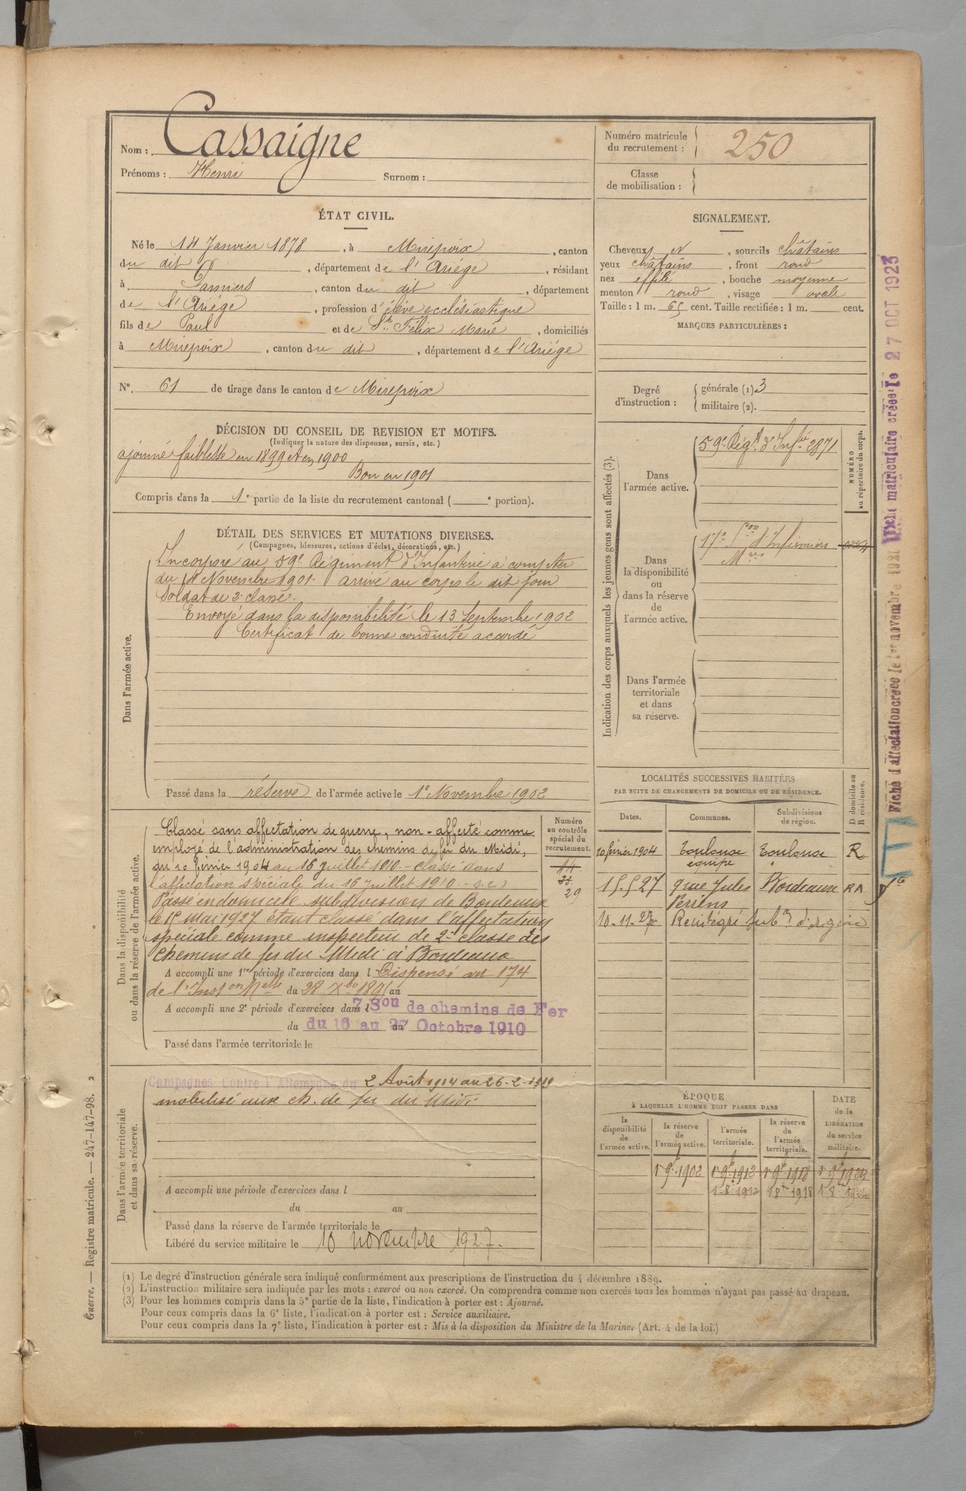 Nom : Cassaigne
Prénoms : Henri Surnom :
Numéro matricule du recrutement : 250
Classe de mobilisation :
ÉTAT CIVIL.
Né le 14 Janvier 1878, à Mirepoix, canton
du dit, département de l'Ariège, résidant
à Pamiers, canton du dit, département
de l'Ariège, profession d'élève ecclésiastique
fils de Paul et de Ste Félix Marie, domiciliés
à Mirepoix, canton du dit, département de l'Ariège
N° 61 de tirage dans le canton de Mirepoix
SIGNALEMENT.
Cheveux N, sourcils châtains
yeux châtains, front rond
nez effilé, bouche moyenne
menton rond, visage ovale
Taille : 1 m. 65 cent. Taille rectifiée : 1 m. cent.
MARQUES PARTICULIÈRES :
Degré d'instruction : générale (1) 3
militaire (2).
DÉCISION DU CONSEIL DE REVISION ET MOTIFS.
(Indiquer la nature des dispenses, sursis, etc.)
ajourné faiblesse en 1899 et en 1900
Bon en 1901
Compris dans la 1e partie de la liste du recrutement cantonal ( e portion).
DÉTAIL DES SERVICES ET MUTATIONS DIVERSES.
(Campagnes, blessures, actions d'éclat, décorations, etc.)
Dans l'armée active.
Incorporé au 59e Régiment d'Infanterie à compter
du 14 Novembre 1901. arrivé au corps le dit jour
Soldat de 2e classe.
Envoyé dans la disponibilité le 13 Septembre 1902
Certificat de bonne conduite accordé
Passé dans la réserve de l'armée active le 1e Novembre 1902
Indication des corps auxquels les jeunes gens sont affectés (3).
NUMÉRO au répertoire du corps.
Dans l'armée active.
59e Régt d'Infie 2871
Dans la disponibilité ou dans la réserve de l'armée active.
17e Son d'Infirmiers
Mres
Dans l'armée territoriale et dans sa réserve.
LOCALITÉS SUCCESSIVES HABITÉES
PAR SUITE DE CHANGEMENTS DE DOMICILE OU DE RÉSIDENCE.
Dates. Communes. Subdivisions de région. D domicile ou R résidence.
10 février 1904 Toulouse Toulouse R
15.5.27 9 rue Jules Bordeaux RA
Periens
Réintégré subon d'origine
Dans la disponibilité ou dans la réserve de l'armée active.
Numéro au contrôle spécial du recrutement.
29
Classé sans affectation de guerre, non-affecté comme
employé de l'administration des chemins de fer du Midi,
du 10 février 1904 au 16 juillet 1910 - classé dans
l'affectation spéciale du 16 juillet 1910
Passe en domicile subdivision de Bordeaux
le 15 Mai 1927 étant classé dans l'affectation
spéciale comme inspecteur de 2e classe des
Chemins de fer du Midi à Bordeaux
A accompli une 1re période d'exercices dans l Dispensé art 174
de l'Inston Mlle du 28 Xbre 1895 au
A accompli une 2e période d'exercices dans l 7 Son de chemins de Fer
du 16 au 27 Octobre 1910
Passé dans l'armée territoriale le
Dans l'armée territoriale et dans sa réserve.
Campagnes Contre l'Allemagne du 2 Août 1914 au 26-2-1919
mobilisé aux ch. de fer du Midi
A accompli une période d'exercices dans l
du au
Passé dans la réserve de l'armée territoriale le
Libéré du service militaire le 10 novembre 1927.
ÉPOQUE
À LAQUELLE L'HOMME DOIT PASSER DANS
la disponibilité de l'armée active. la réserve de l'armée active. l'armée territoriale. la réserve de l'armée territoriale. DATE de la LIBÉRATION du service militaire.
1 9bre 1902 1 9bre 1912 1 9bre 1918
(1) Le degré d'instruction générale sera indiqué conformément aux prescriptions de l'instruction du 4 décembre 1889.
(2) L'instruction militaire sera indiquée par les mots : exercé ou non exercé. On comprendra comme non exercés tous les hommes n'ayant pas passé au drapeau.
(3) Pour les hommes compris dans la 5e partie de la liste, l'indication à porter est : Ajourné.
Pour ceux compris dans la 6e liste, l'indication à porter est : Service auxiliaire.
Pour ceux compris dans la 7e liste, l'indication à porter est : Mis à la disposition du Ministre de la Marine. (Art. 4 de la loi.)
Guerre. — Registre matricule. — 247-147-98. 2
Fiche d'affectation créée le 1er novembre 1921
matriculaire créée le 27 OCT 1923